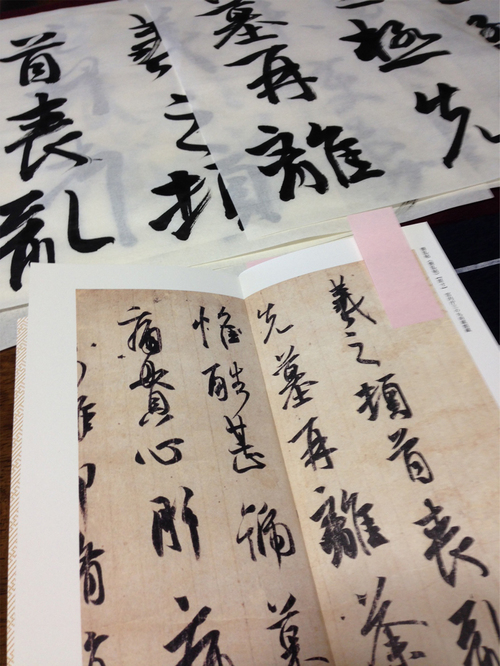 極先
墓再離
羲之頓
首喪亂
羲之頓首喪亂
先墓再離荼
惟酷甚號慕
痛貫心肝痛